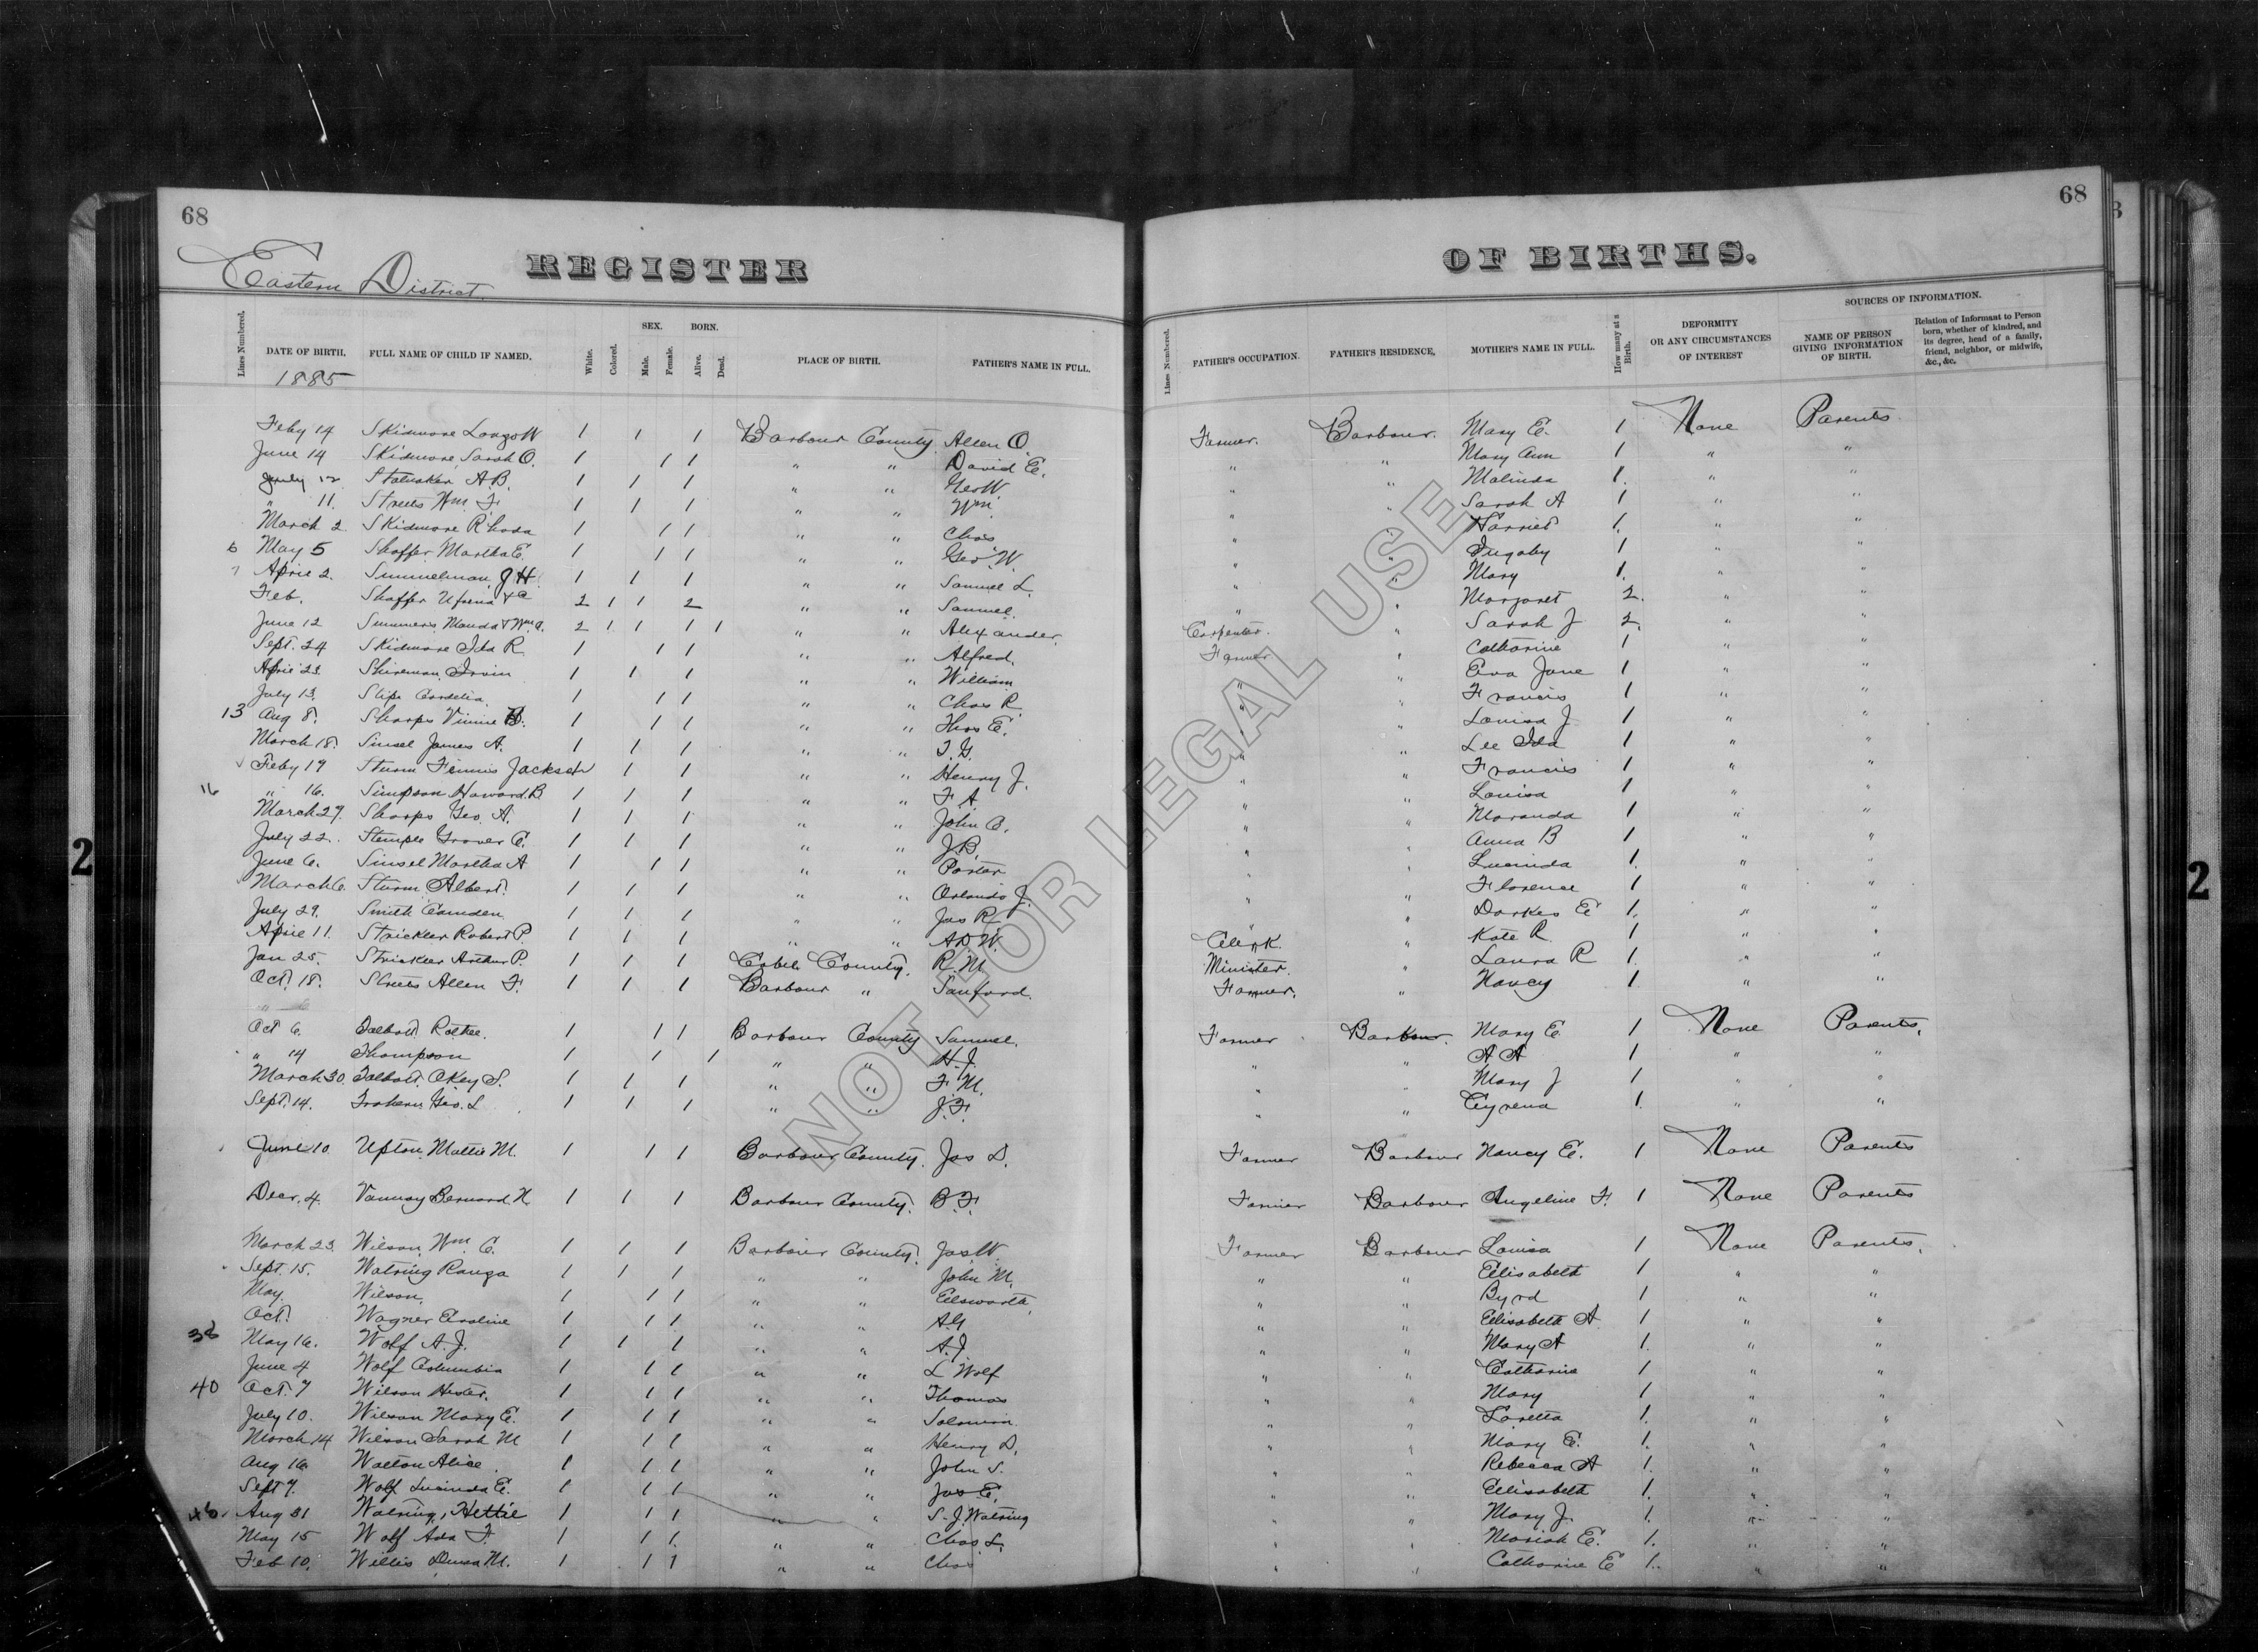 68
68
Eastern District.
REGISTER
OF BIRTHS.
Lines Numbered.
DATE OF BIRTH.
FULL NAME OF CHILD IF NAMED.
White.
Colored.
SEX.
Male.
Female.
BORN.
Alive.
Dead.
PLACE OF BIRTH.
FATHER'S NAME IN FULL.
Lines Numbered.
FATHER'S OCCUPATION.
FATHER'S RESIDENCE.
MOTHER'S NAME IN FULL.
How many at a Birth.
DEFORMITY
OR ANY CIRCUMSTANCES
OF INTEREST
SOURCES OF INFORMATION.
NAME OF PERSON
GIVING INFORMATION
OF BIRTH.
Relation of Informant to Person
born, whether of kindred, and
its degree, head of a family,
friend, neighbor, or midwife,
&c., &c.
1885
Feby 14 Skidmore 1 1 1 Barbour County Allen O. Farmer. Barbour. Mary E. 1 None Parents
June 14 Skidmore, Sarah O. 1 1 1 " " David E. " " Mary Ann 1 " "
July 12 Stalnaker A.B. 1 1 1 " " Geo W. " " Malinda 1. " "
" 11. Streets Wm. F. 1 1 1 " " Wm. " " Sarah A 1 " "
March 2. Skidmore Rhoda 1 1 1 " " Chas " " Harriet 1. " "
6 May 5 Shaffer Martha E. 1 1 1 " " Geo. W. " " 1 " "
7 April 2. J.H. 1 1 1 " " Samuel L. " " Mary 1. " "
Feb. Shaffer 2 1 1 2 " " Samuel. " " Margaret 2. " "
June 12 Summers Manda & Wm. A. 2 1 1 1 1 " " Alexander. Carpenter. " Sarah J 2. " "
Sept. 24 Skidmore Ida R. 1 1 1 " " Alfred. Farmer " Catharine 1 " "
April 23. Irvin 1 1 1 " " William " " Eva Jane 1 " "
July 13. Slips Cordelia. 1 1 1 " " Chas R. " " Francis 1 " "
13 Aug 8. Sharps Vinnie B. 1 1 1 " " Thos E. " " Louisa J 1 " "
March 18. Sinsel James A. 1 1 1 " " " " Lee Ida 1 " "
Feby 19 Sturm Jackson 1 1 " " Henry J. " " Francis 1 " "
16 " 16. Simpson Howard B 1 1 1 " " F. A. " " Louisa 1 " "
March 27. Sharps Geo. A. 1 1 1 " " John " " Maranda 1 " "
July 22. Stemple Grover C. 1 1 1 " " J.B. " " Anna B 1 " "
June 6. Sinsel Martha A 1 1 1 " " Porter " " Lucinda 1. " "
March 6. Sturm Albert. 1 1 1 " " Orlando J. " " Florence 1 " "
July 29. Smith Camden 1 1 1 " " Jas R. " " Dorkes E 1. " "
April 11. Strickler Robert P. 1 1 1 " " A.D.W. Clerk. " Kate R. 1 " "
Jan 25. Strickler Arthur P. 1 1 1 Cabell County. R. M. Minister. " Laura R 1. " "
Oct. 18. Streets Allen F. 1 1 1 Barbour " Sanford. Farmer. " Nancy 1. " "
Oct 6 Talbott 1 1 1 Barbour County Samuel. Farmer Barbour. Mary E. 1 None Parents.
" 14 Thompson 1 1 1 " " H.J. " " A A 1 " "
March 30. Talbott, Okey S. 1 1 1 " " F. M. " " Mary J 1 " "
Sept. 14. Trahern Geo. L 1 1 1 " " J.F. " " Cyrena 1. " "
June 10. Upton, Mattie M. 1 1 1 Barbour County. Jas D. Farmer Barbour Nancy E. 1 None Parents
Decr. 4. Vannoy Bernard H 1 1 1 Barbour County. B.F. Farmer Barbour Angeline F. 1 None Parents
March 23. Wilson, Wm. C. 1 1 1 Barbour County. Jas W. Farmer Barbour Louisa 1 None Parents.
Sept. 15. Watring Ranga 1 1 1 " " John M. " " Elisabeth 1 " "
May. Wilson. 1 1 1 " " Ellsworth. " " Byrd 1 " "
Oct. Wagner Evaline 1 1 1 " " " " Elisabeth A. 1 " "
38 May 16. Wolf A. J. 1 1 1 " " A.J. " " Mary A 1. " "
June 4 Wolf Columbia 1 1 1 " " L Wolf " " Catharine 1 " "
40 Oct. 7 Wilson Hester. 1 1 1 " " Thomas " " Mary 1. " "
July 10. Wilson Mary E. 1 1 1 " " Solomon. " " Loretta 1. " "
March 14 Wilson Sarah M 1 1 1 " " Henry D. " " Mary E. 1. " "
Aug 16 Walton Alice 1 1 1 " " John S. " " Rebecca A 1. " "
Sept 7. Wolf Lucinda E. 1 1 1 " " Jas E. " " Elisabeth 1. " "
Aug 31 Watring, Hettie 1 1 1 " " S. J. Watring " " Mary J. 1. " "
May 15 Wolf Ada F. 1 1 1 " " Chas. L. " " Mariah E. 1. " "
Feb 10. Willis M. 1 1 1 " " Chas " " Catharine E 1. " "
2
2
NOT FOR LEGAL USE